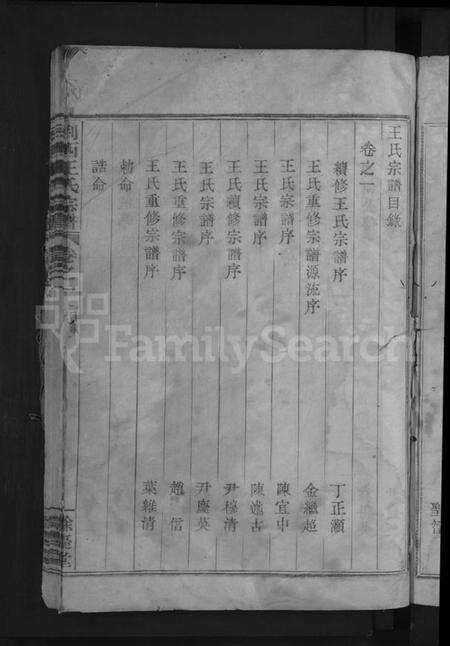 王氏宗譜目錄
卷之一
續修王氏宗譜序 丁正灝
王氏重修宗譜源流序 金繼超
王氏宗譜序 陳宜中
王氏宗譜序 陳述古
王氏續修宗譜序 尹穆清
王氏宗譜序 尹慶英
王氏重修宗譜序 趙信
王氏重修宗譜序 葉維清
勅命
誥命
西王氏宗譜
槐堂
FamilySearch